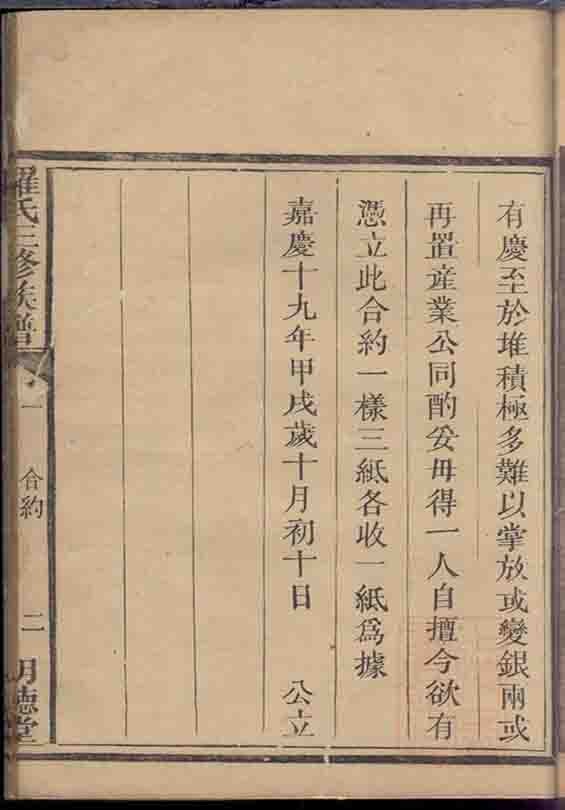 有慶至於堆積極多難以掌放或變銀兩或
再置産業公同酌妥毋得一人自擅今欲有
憑立此合約一樣三紙各收一紙爲據
嘉慶十九年甲戌歲十月初十日 公立
羅氏三修族譜 一 合約 二 明德堂